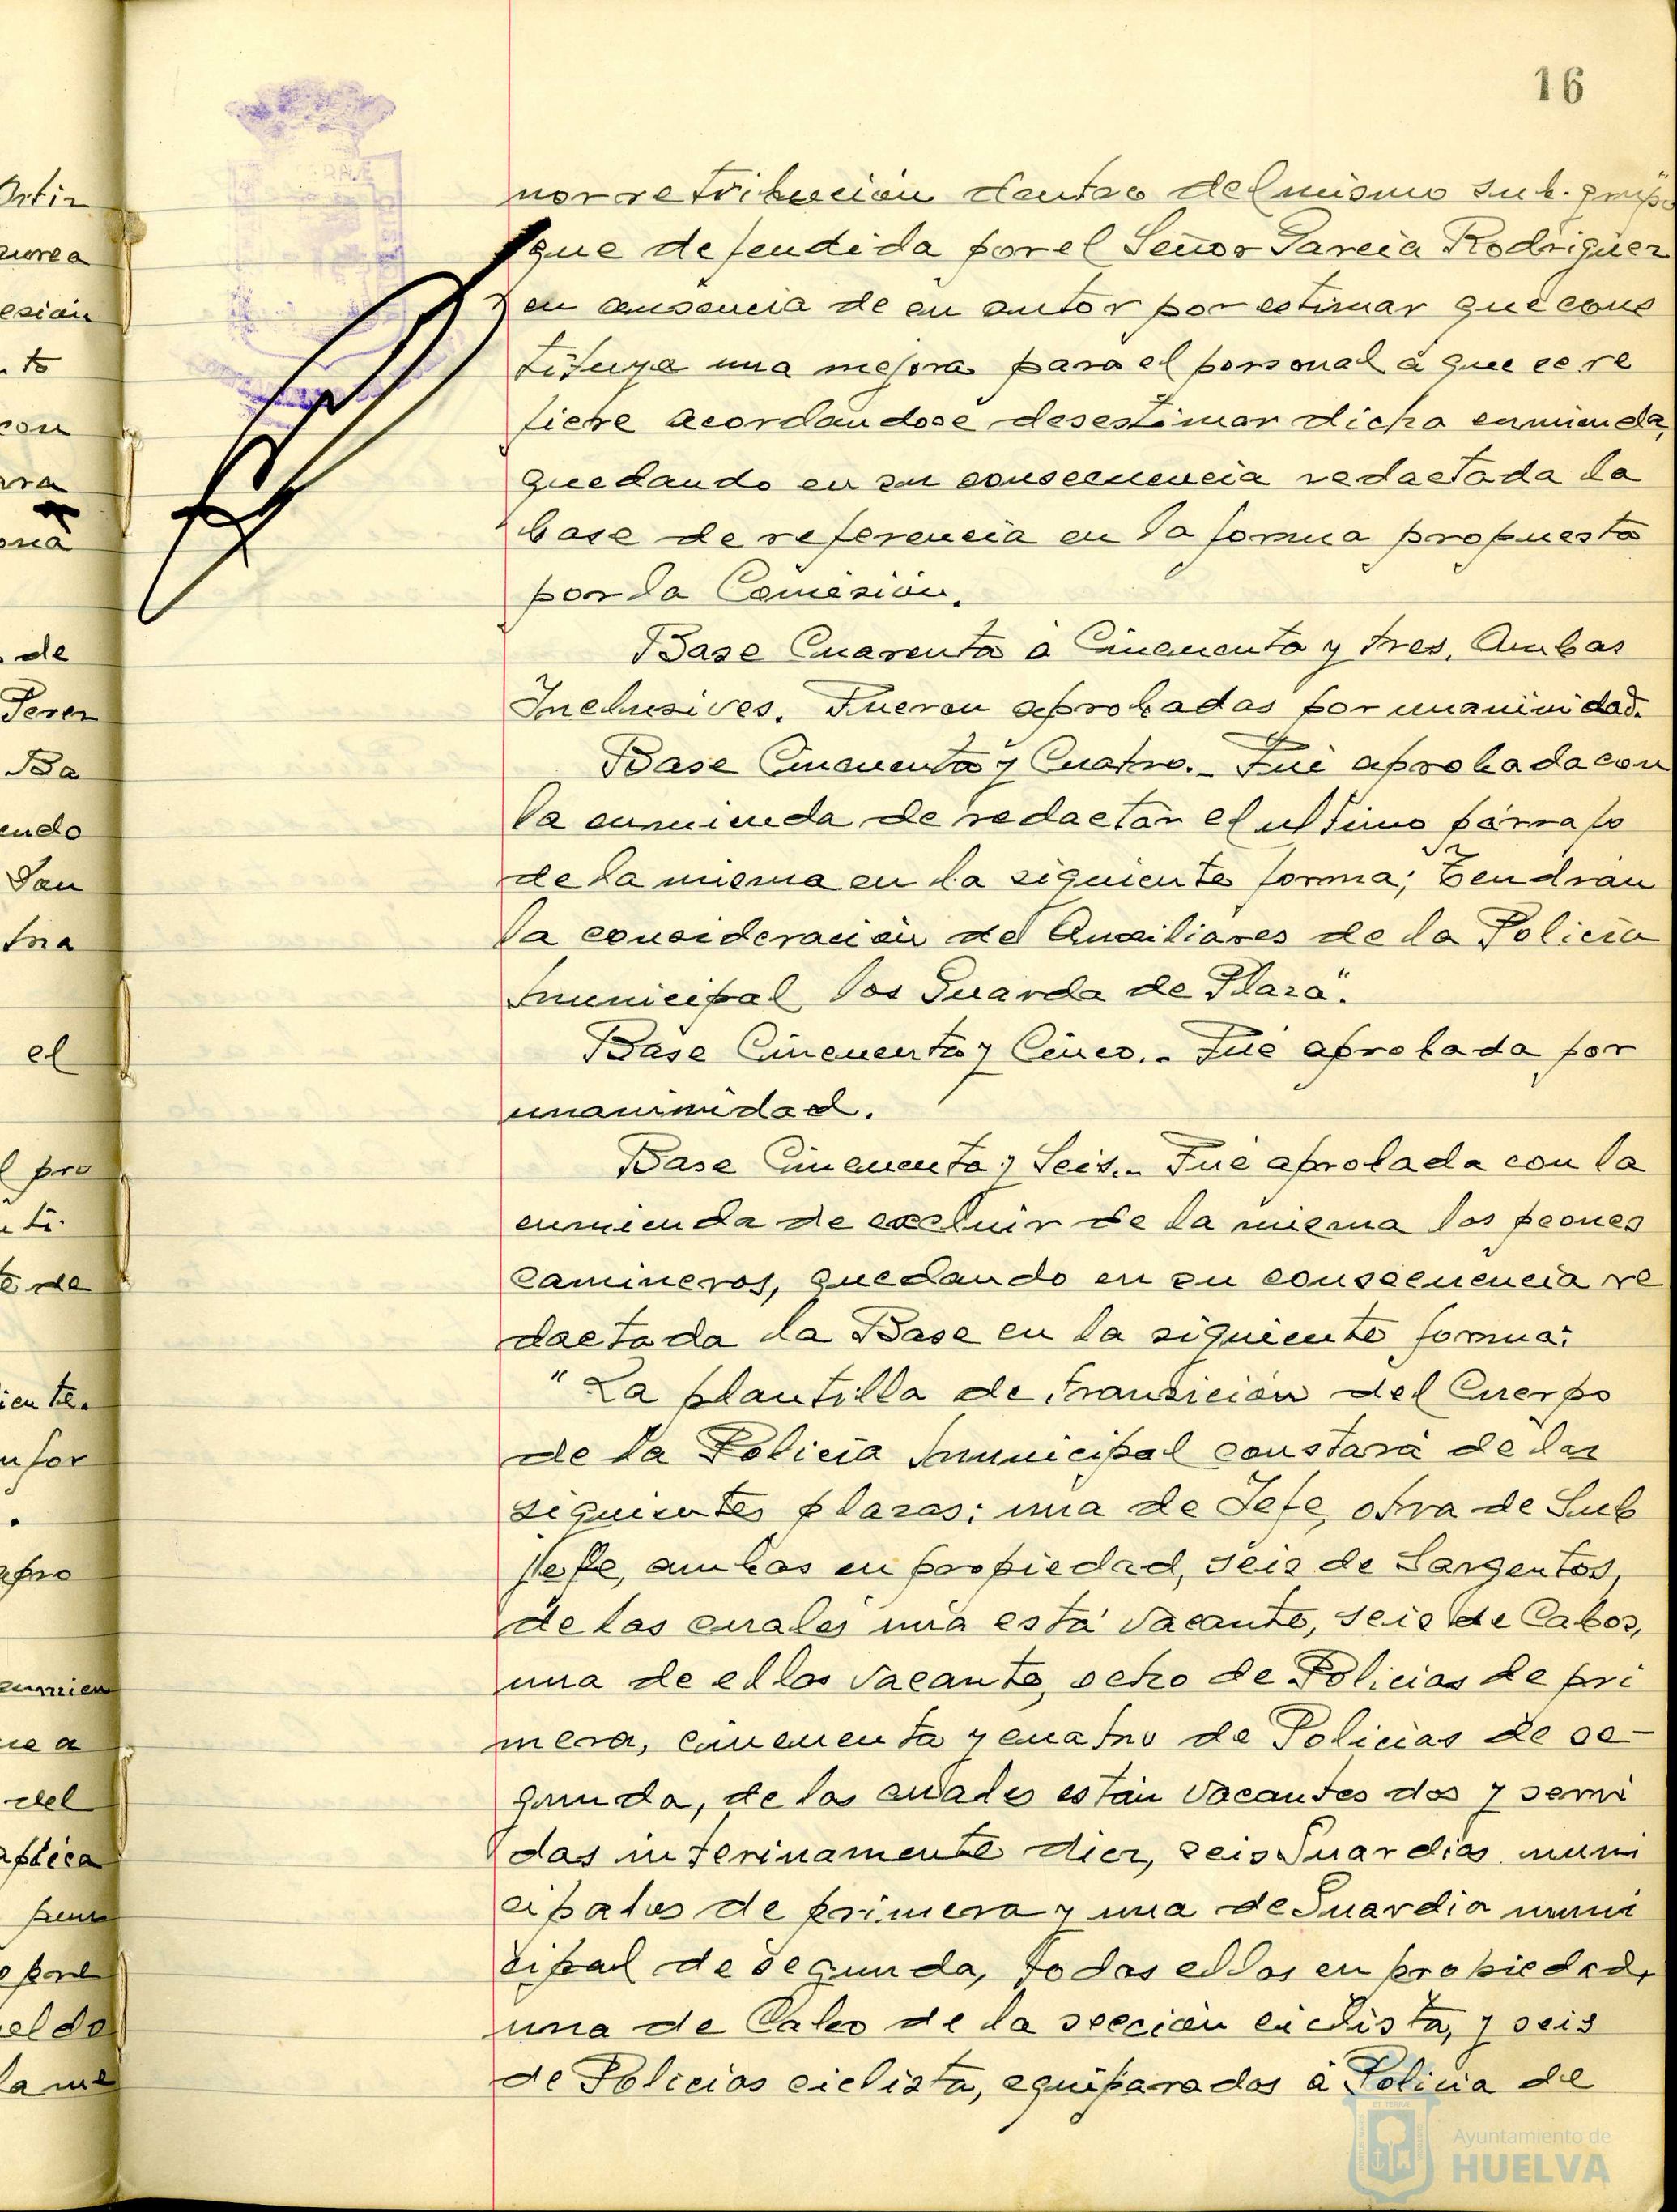 16
nor retribución dentro del mismo sub-grupo"
que defendida por el Señor García Rodríguez
en ausencia de su autor por estimar que cons
tituye una mejora para el personal á que se re
fiere acordandose desestimar dicha enmienda,
quedando en su consecuencia redactada la
base de referencia en la forma propuesta
por la Comisión.
Base Cuarenta á Cincuenta y tres, Ambas
Inclusives. Fueron aprobadas por unanimidad.
Base Cincuenta y Cuatro.- Fué aprobada con
la enmienda de redactar el ultimo párrafo
de la misma en la siguiente forma; "Tendrán
la consideración de Auxiliares de la Policía
municipal los Guarda de Plaza".
Base Cincuenta y Cinco.- Fué aprobada por
unanimidad.
Base Cincuenta y Seis.- Fué aprobada con la
enmienda de excluir de la misma los peones
camineros, quedando en su consecuencia re
dactada la Base en la siguiente forma:
"La plantilla de transición del Cuerpo
de la Policía municipal constará de las
siguientes plazas: una de Jefe, otra de Sub
Jefe, ambas en propiedad, seis de Sargentos,
de las cuales una está vacante, seis de Cabos,
una de ellas vacante, ocho de Policias de pri
mera, cincuenta y cuatro de Policías de se-
gunda, de las cuales están vacantes dos y servi
das interinamente diez, seis Guardias muni
cipales de primera y una de Guardia muni
cipal de segunda, todas ellas en propiedad,
una de Cabo de la sección ciclista, y seis
de Policias ciclista, equiparados á Policía de
Ayuntamiento de
HUELVA